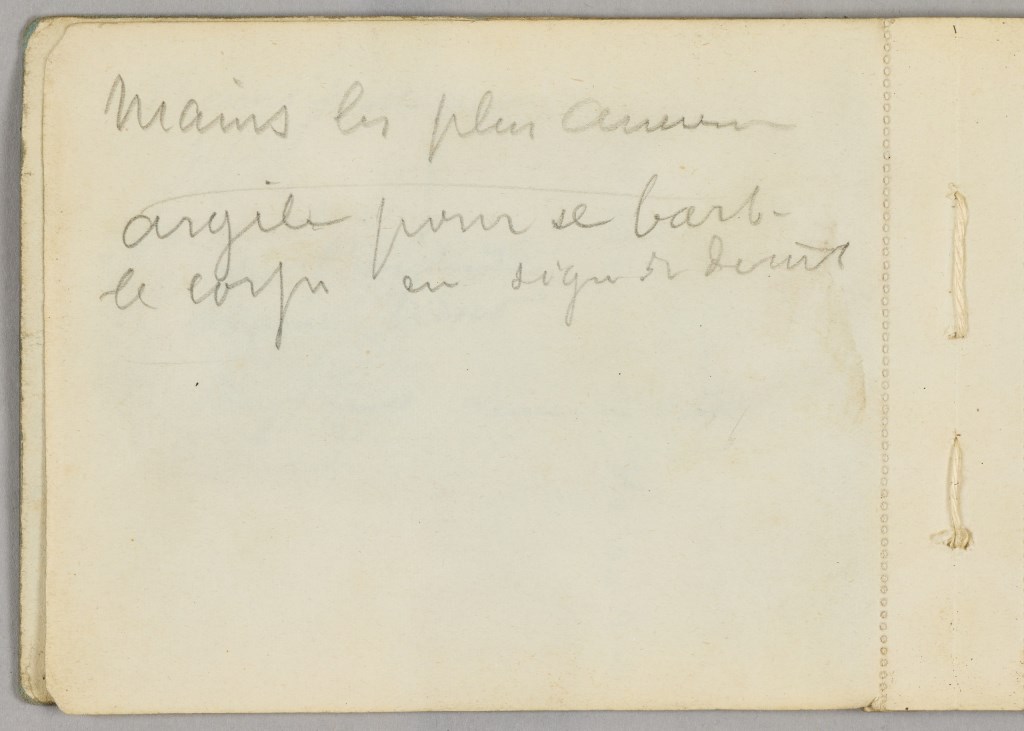 Mains les plus
argile pour se barb-
le corps en signe de deuil